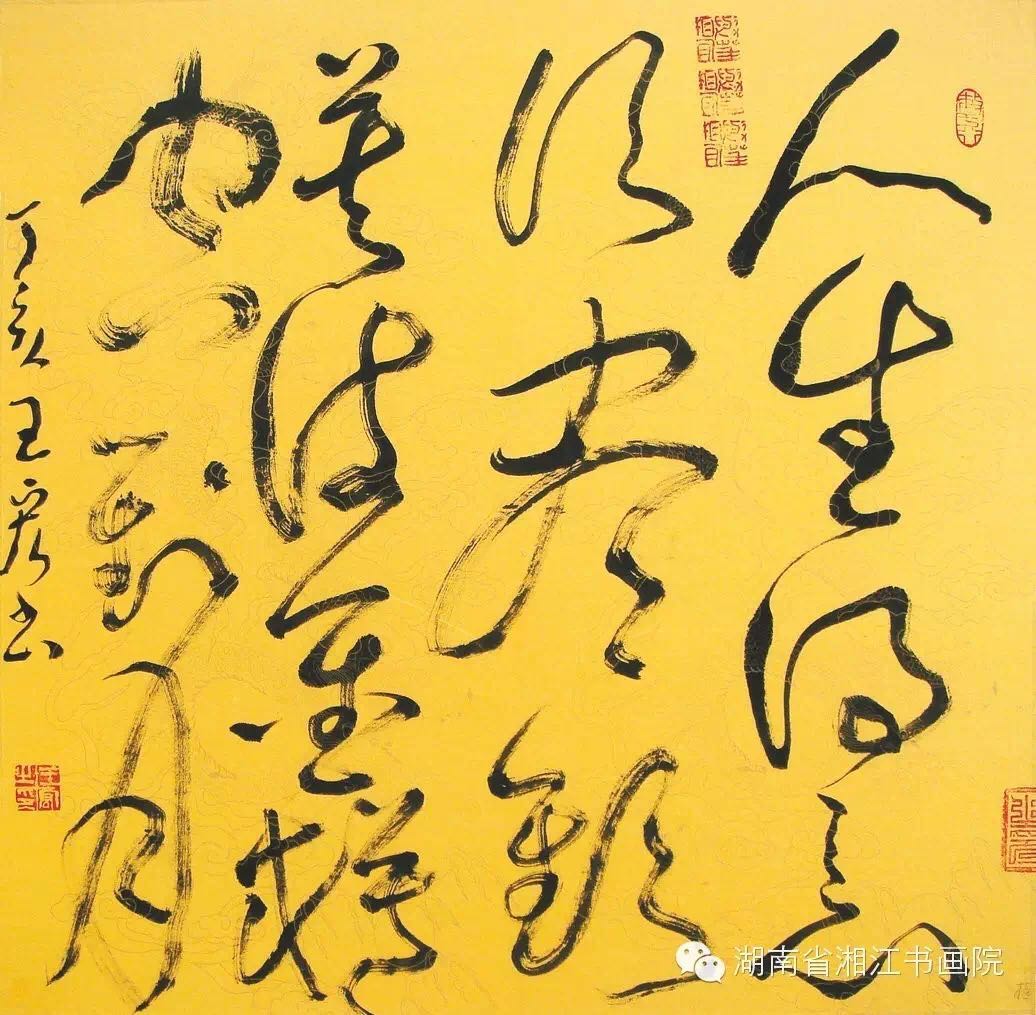 人生得意
須盡歡
莫使金樽
空對月
丁亥王书
湖南省湘江书画院